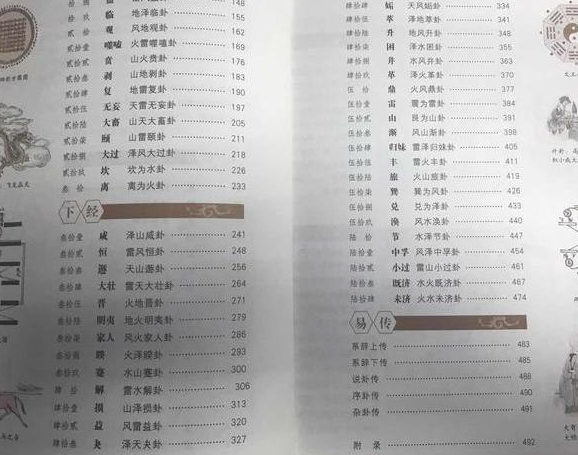 贰拾 观 风地观卦 162
贰拾壹 噬嗑 火雷噬嗑卦 169
贰拾贰 贲 山火贲卦 176
贰拾叁 剥 山地剥卦 183
贰拾肆 复 地雷复卦 190
贰拾伍 无妄 天雷无妄卦 197
贰拾陆 大畜 山天大畜卦 205
贰拾柒 颐 山雷颐卦 211
贰拾捌 大过 泽风大过卦 218
贰拾玖 坎 坎为水卦 226
叁拾 离 离为火卦 233
下经
叁拾壹 咸 泽山咸卦 241
叁拾贰 恒 雷风恒卦 248
叁拾叁 遯 天山遯卦 256
叁拾肆 大壮 雷天大壮卦 264
叁拾伍 晋 火地晋卦 271
叁拾陆 明夷 地火明夷卦 279
叁拾柒 家人 风火家人卦 286
叁拾捌 睽 火泽睽卦 293
叁拾玖 蹇 水山蹇卦 300
肆拾 解 雷水解卦 306
肆拾壹 损 山泽损卦 313
肆拾贰 益 风雷益卦 320
肆拾叁 夬 泽天夬卦 327
肆拾肆 姤 天风姤卦 334
肆拾伍 萃 泽地萃卦 341
肆拾陆 升 地风升卦 348
肆拾柒 困 泽水困卦 355
肆拾捌 井 水风井卦 363
肆拾玖 革 泽火革卦 370
伍拾 鼎 火风鼎卦 377
伍拾壹 雷 震为雷卦 384
伍拾贰 山 艮为山卦 391
伍拾叁 渐 风山渐卦 398
伍拾肆 归妹 雷泽归妹卦 405
伍拾伍 丰 雷火丰卦 411
伍拾陆 旅 火山旅卦 419
伍拾柒 巽 巽为风卦 426
伍拾捌 兑 兑为泽卦 433
伍拾玖 涣 风水涣卦 440
陆拾 节 水泽节卦 447
陆拾壹 中孚 风泽中孚卦 454
陆拾贰 小过 雷山小过卦 461
陆拾叁 既济 水火既济卦 467
陆拾肆 未济 火水未济卦 474
易传
系辞上传 483
系辞下传 485
说卦传 488
序卦传 490
杂卦传 491
附录 492